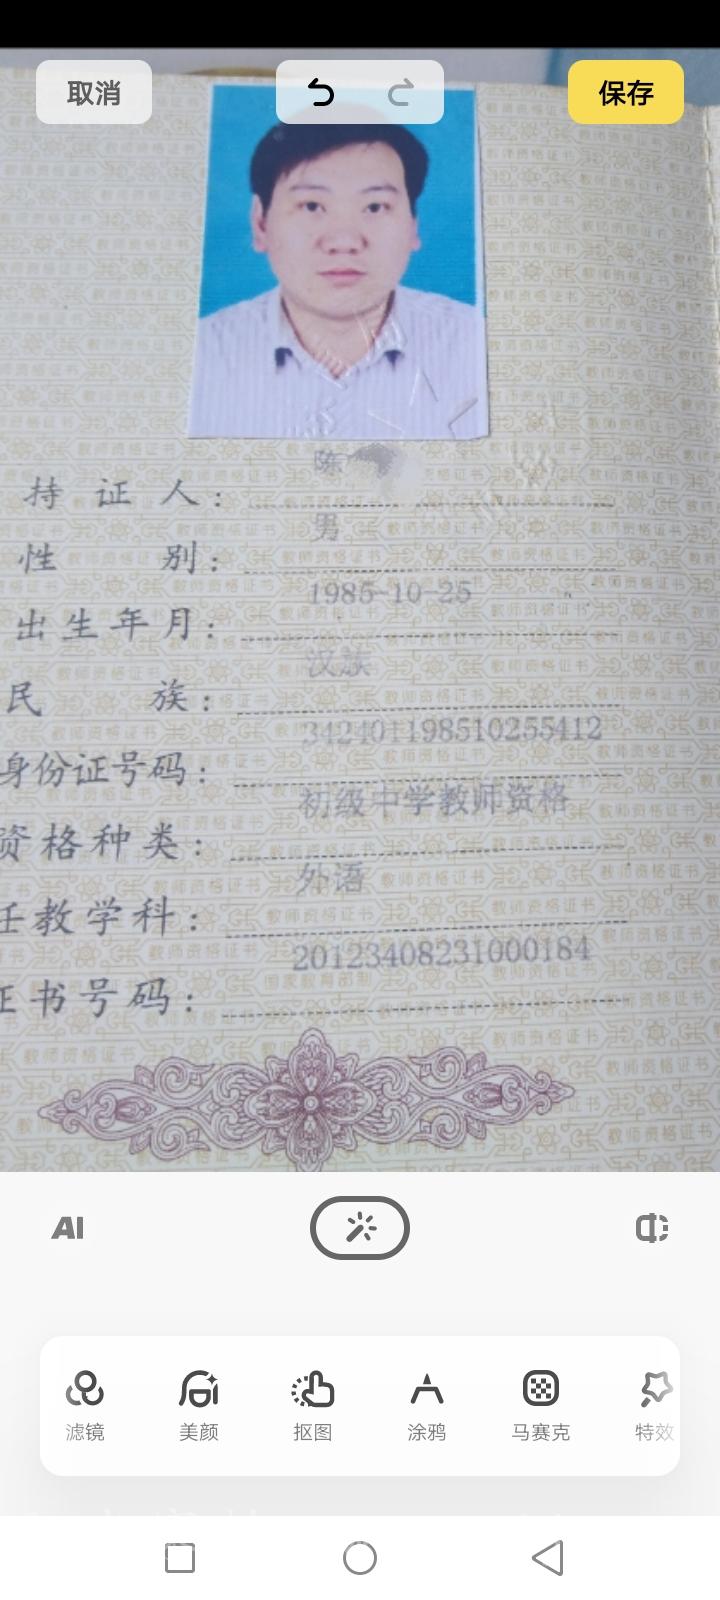 取消
保存
陈
持证人：
男
性别：
1985-10-25
出生年月：
汉族
民族：
342401198510255412
身份证号码：
初级中学教师资格
资格种类：
外语
任教学科：
20123408231000184
证书号码：
AI
滤镜
美颜
抠图
涂鸦
马赛克
特效